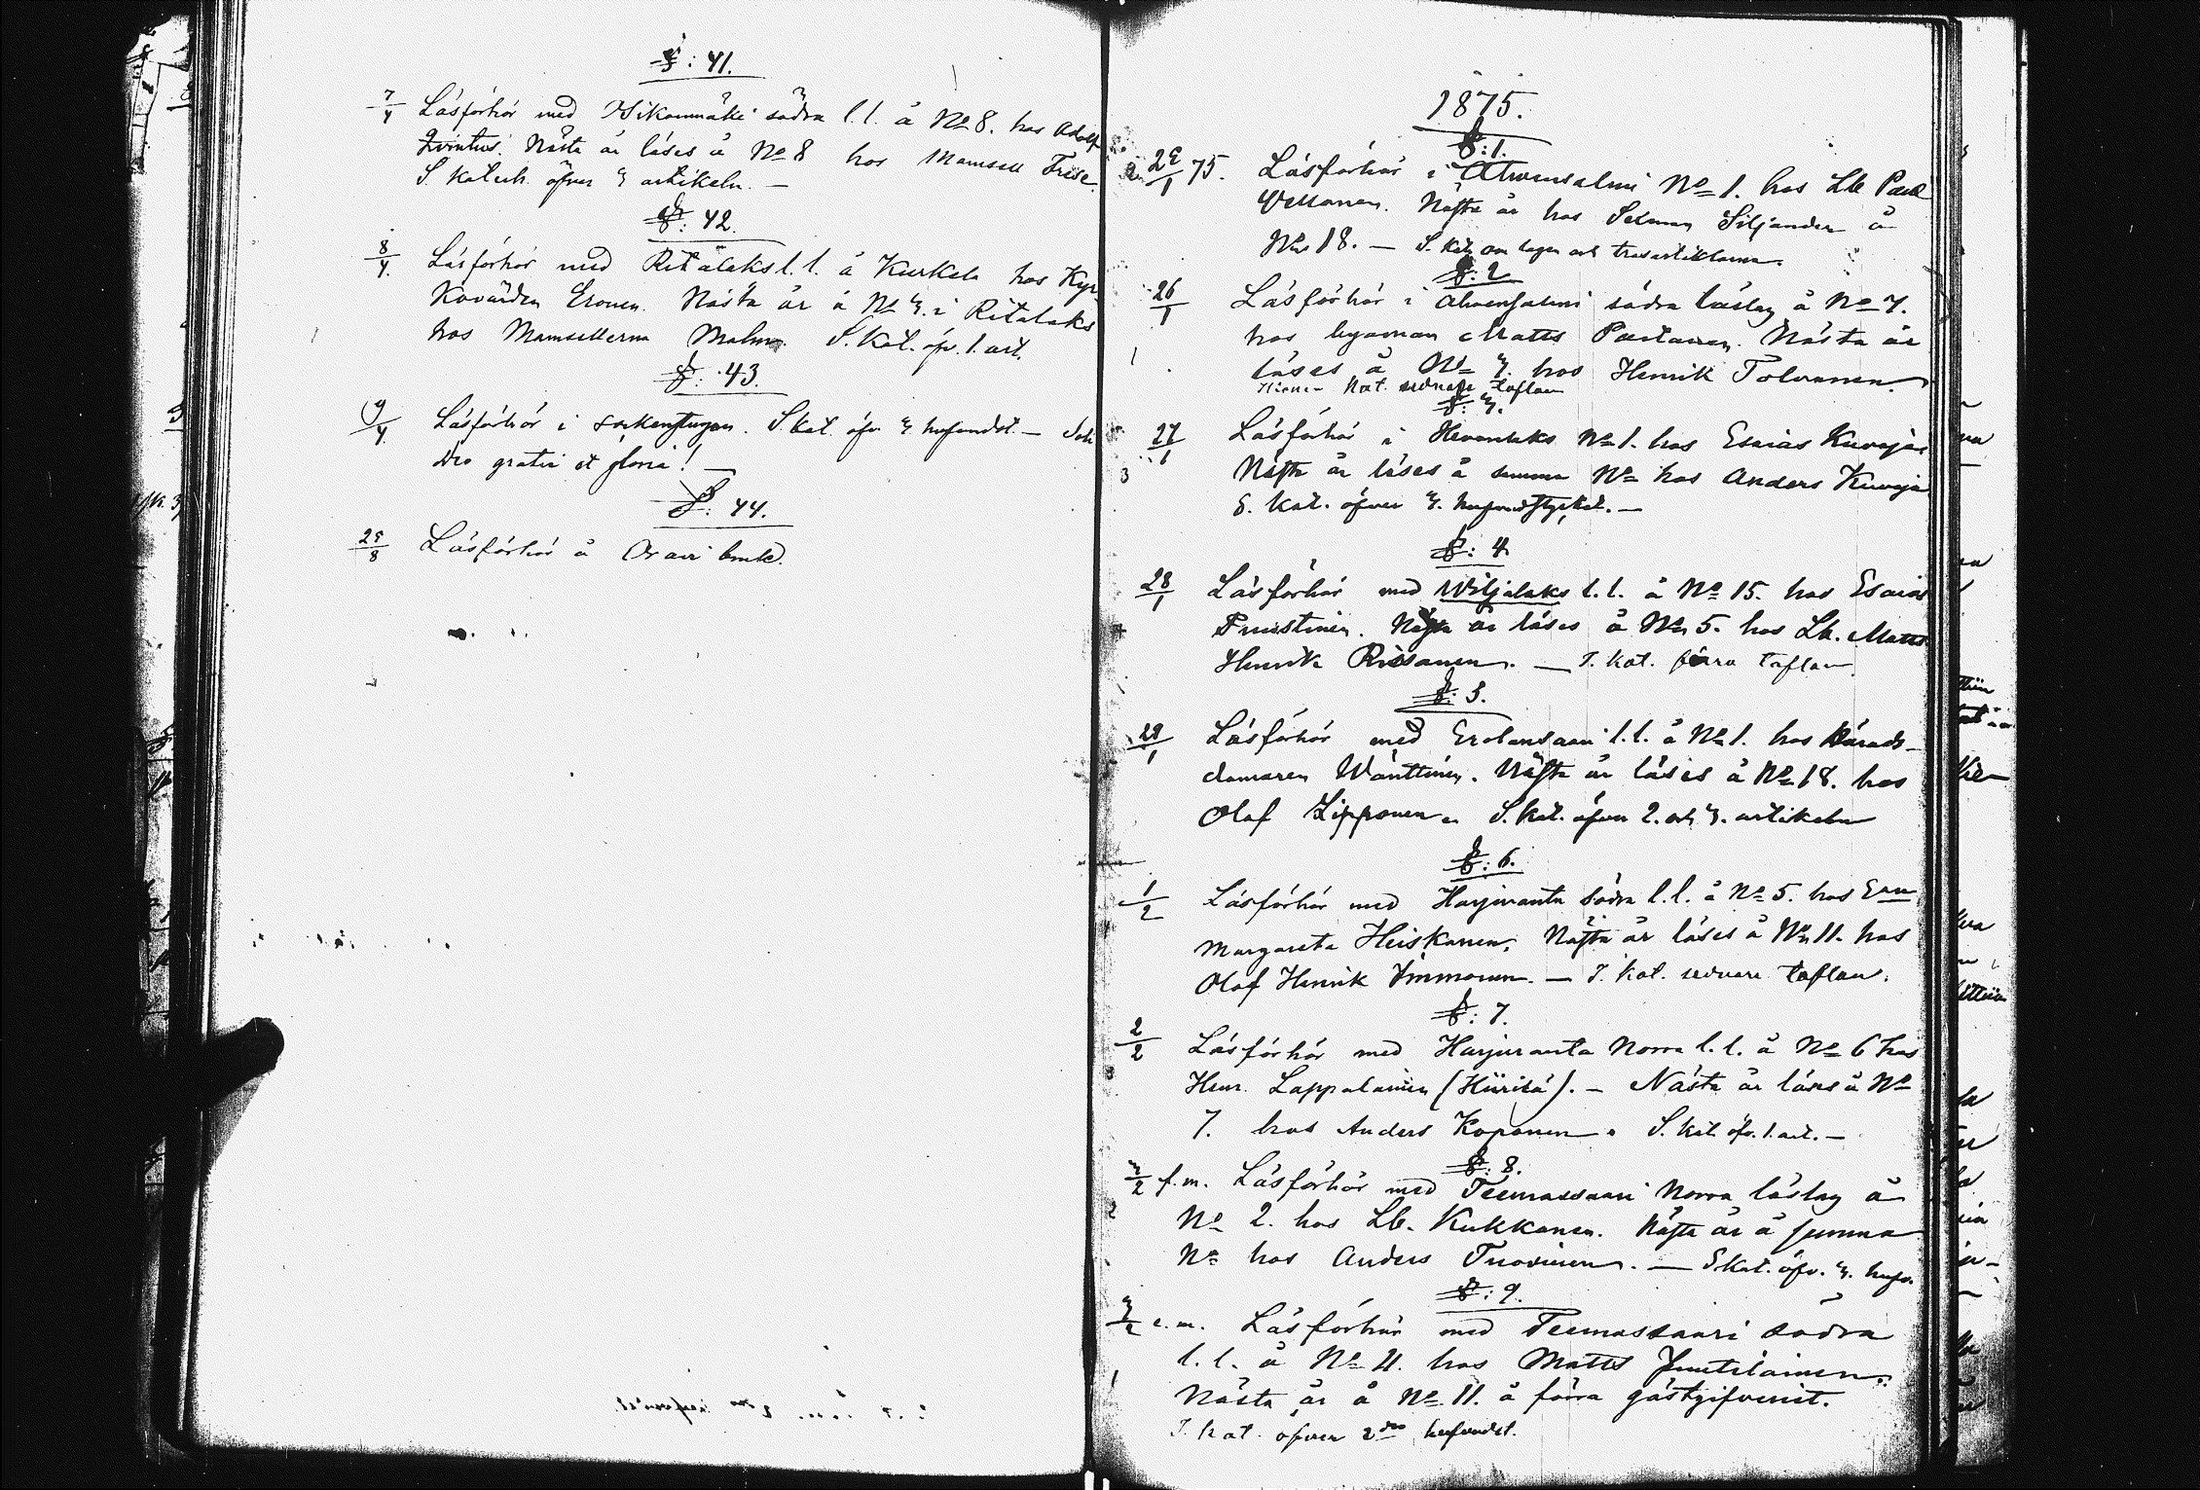 §: 41.
7/4 Läsförhör med Hikamäki södra l.l. å No 8. hos Adolf
Qvintus. Nästa år läses å No 8 hos Mamsell Frese.
S. Katech. öfver 3 artikeln. —
§: 42.
8/4 Läsförhör med Ritalaks l.l. å Kurkela hos Kyr-
kovärden Eronen. Nästa år å No 3. i Ritalaks
hos Mamsellerna Malm. S. Kat. öfv. 1. art.
§: 43.
9/4 Läsförhör i sockenstugan. S. Kat. öfv. 3 hufvudst. — Soli
Deo gratia et gloria! —
§: 44.
29/8 Läsförhör å Oravi bruk.
1875.
§: 1.
75. Läsförhör i Ahvensalmi No 1. hos Lb Paul
Nästa år hos Selman Siljander å
No 18. — S. Kat. om lagen och trosartiklarna.
§: 2
26/1 Läsförhör i Ahvensalmi södra läslag å No 7.
hos byaman Matts Partanen. Nästa år
läses å No 7. hos Henrik Tolvanen.
Kat. sednare taflan
§: 3.
27/1 Läsförhör i Hevonlaks No 1. hos Esaias Kuvaja
Nästa år läses å samma No hos Anders Kuvaja
S. Kat. öfver 3. hufvudstycket. —
§: 4
28/1 Läsförhör med Wiljalaks l.l. å No 15. hos Esaias
Puustinen. Nästa år läses å No 5. hos Lb. Matts
Henrik Rissanen. — S. Kat. förra taflan
§: 5.
29/1 Läsförhör med Erolansaari l.l. å No 1. hos Härads-
domaren Wänttinen. Nästa år läses å No 18. hos
Olaf Lipponen. S. Kat. öfver 2. och 3. artikeln
§: 6.
1/2 Läsförhör med Harjuranta södra l.l. å No 5. hos Enn
Margareta Heiskanen. Nästa år läses å No 11. hos
Olof Henrik Immonen. — S. Kat. sednare taflan.
§: 7.
2/2 Läsförhör med Harjuranta Norra l.l. å No 6 hos
Henr. Lappalainen (Hiirilä). — Nästa år läses å No
7. hos Anders Koponen. S. Kat. öfv. 1. art. —
§: 8.
3/2 f.m. Läsförhör med Teemassaari Norra läslag å
No 2. hos Lb. Kukkonen. Nästa år å samma
No hos Anders Tuovinen. — S. Kat. öfv. 3. hufv.
§: 9.
3/2 e.m. Läsförhör med Teemassaari södra
l.l. å No 4. hos Matts Juutilainen.
Nästa år å No 11. å förra gästgifveriet.
S. Kat. öfver 2dra hufvudst.